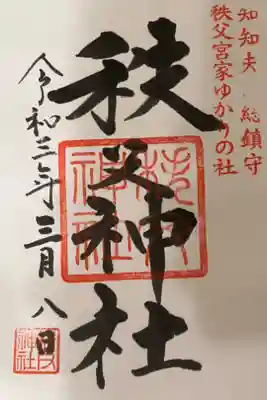 知知夫 総鎮守
秩父宮家ゆかりの社
秩父神社
令和三年三月八日
秩父神社
秩父神社